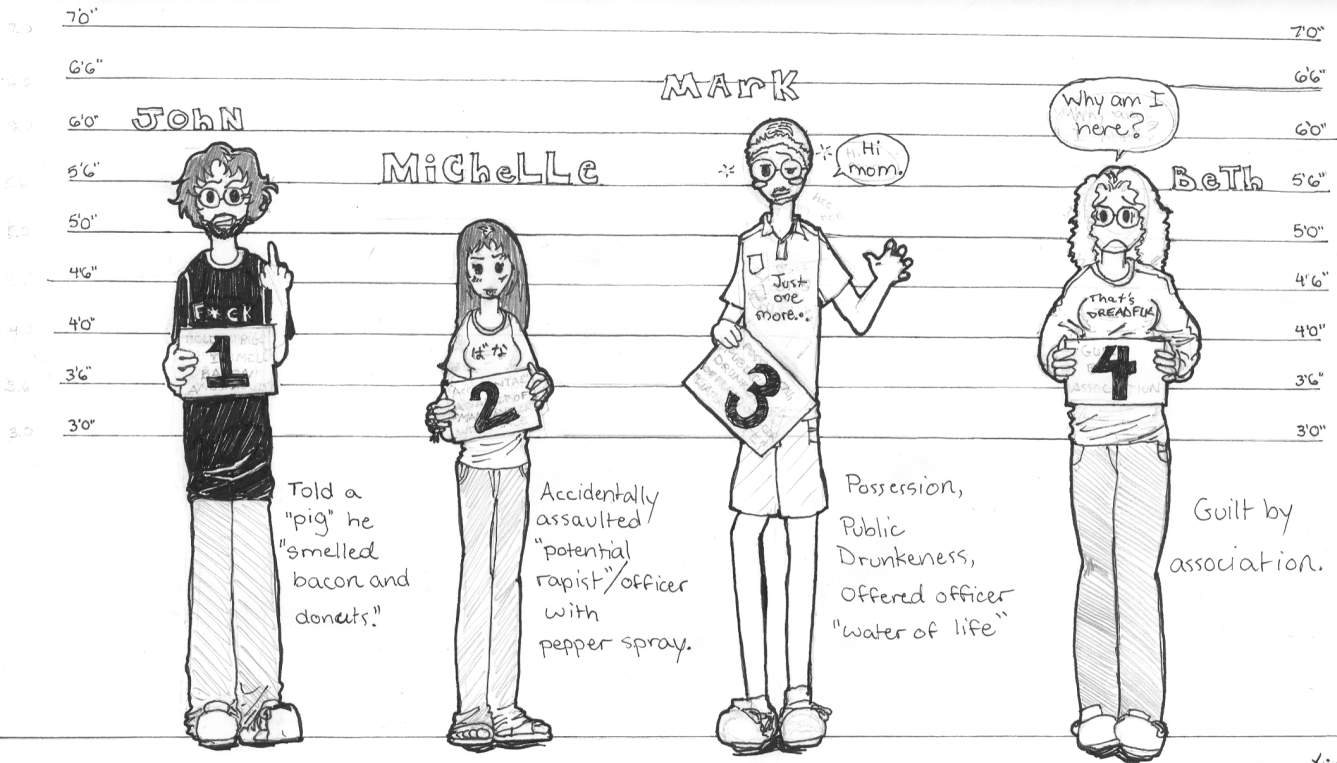 7'0"
7'0"
6'6"
6'6"
6'0"
6'0"
5'6"
5'6"
5'0"
5'0"
4'6"
4'6"
4'0"
4'0"
3'6"
3'6"
3'0"
3'0"
JOhN
F*CK
1
Told a
"pig" he
"smelled
bacon and
donuts."
MiCheLLe
ばな
2
Accidentally
assaulted
"potential
rapist"/officer
with
pepper spray.
MArK
Hi
mom.
HEE
HEE
Just
one
more...
3
Possession,
Public
Drunkeness,
offered officer
"water of life"
Why am I
here?
BeTh
That's
DREADFUL
4
GUILT
BY
ASSOCIATION
Guilt by
association.